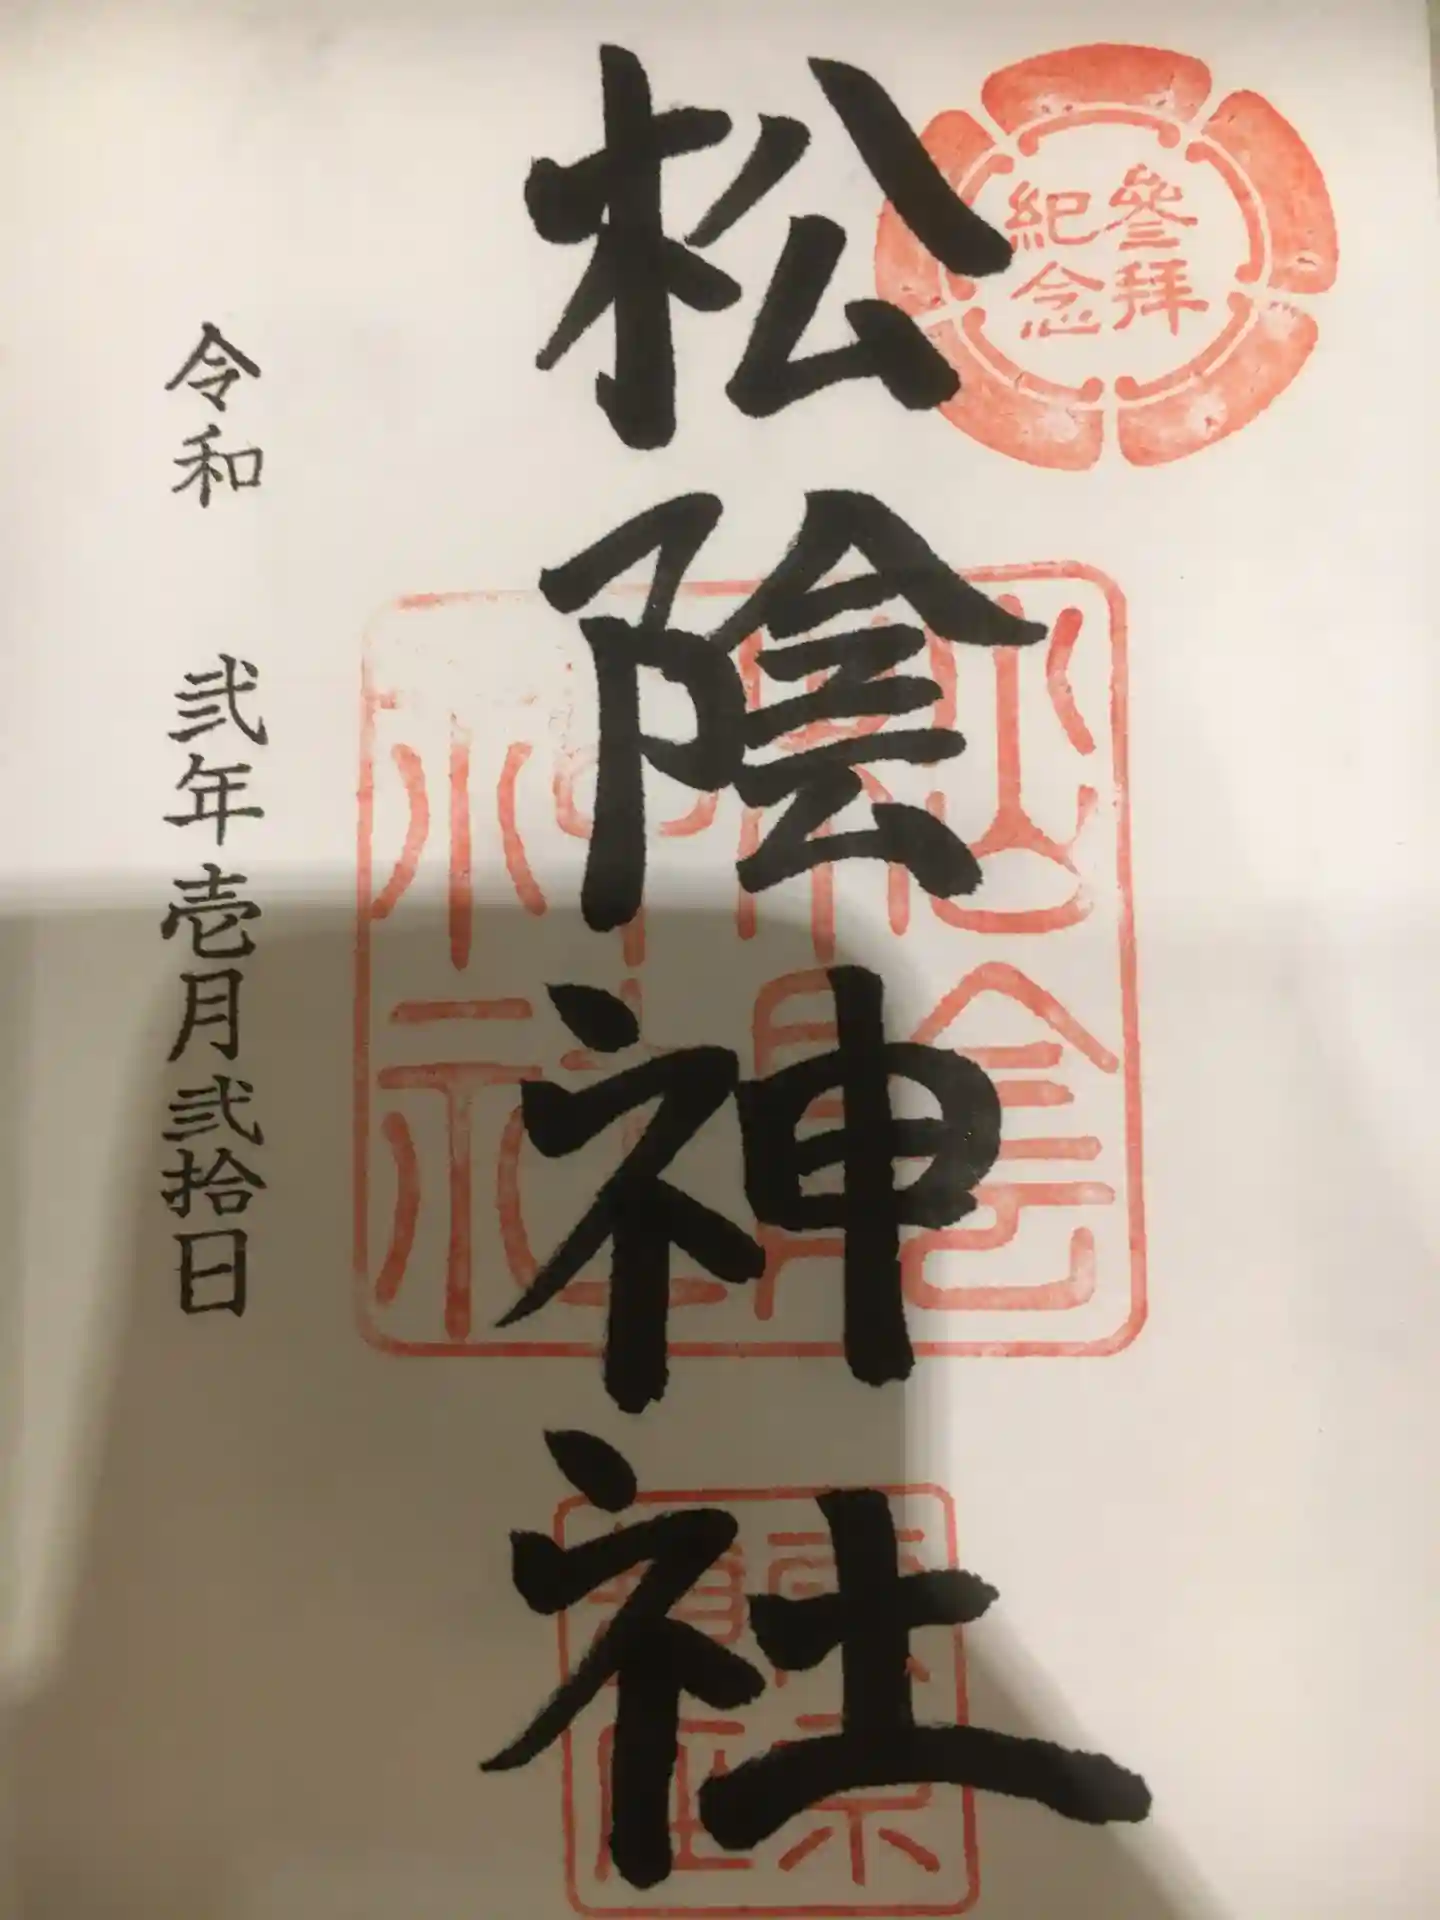 參拜
紀念
松陰神社
松陰
神社
令和 弐年壱月弐拾日